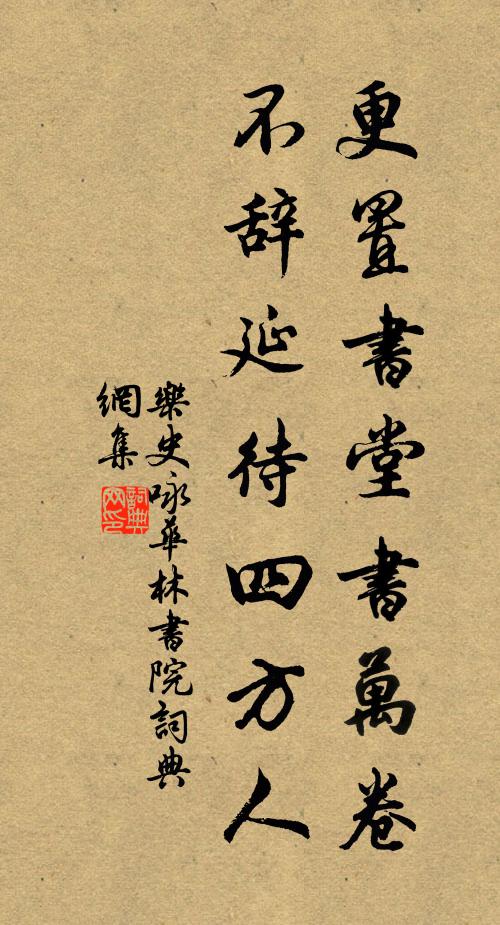 更置書堂書萬卷
不辞延待四方人
樂史咏華林書院詞典
網集
詞典
网印